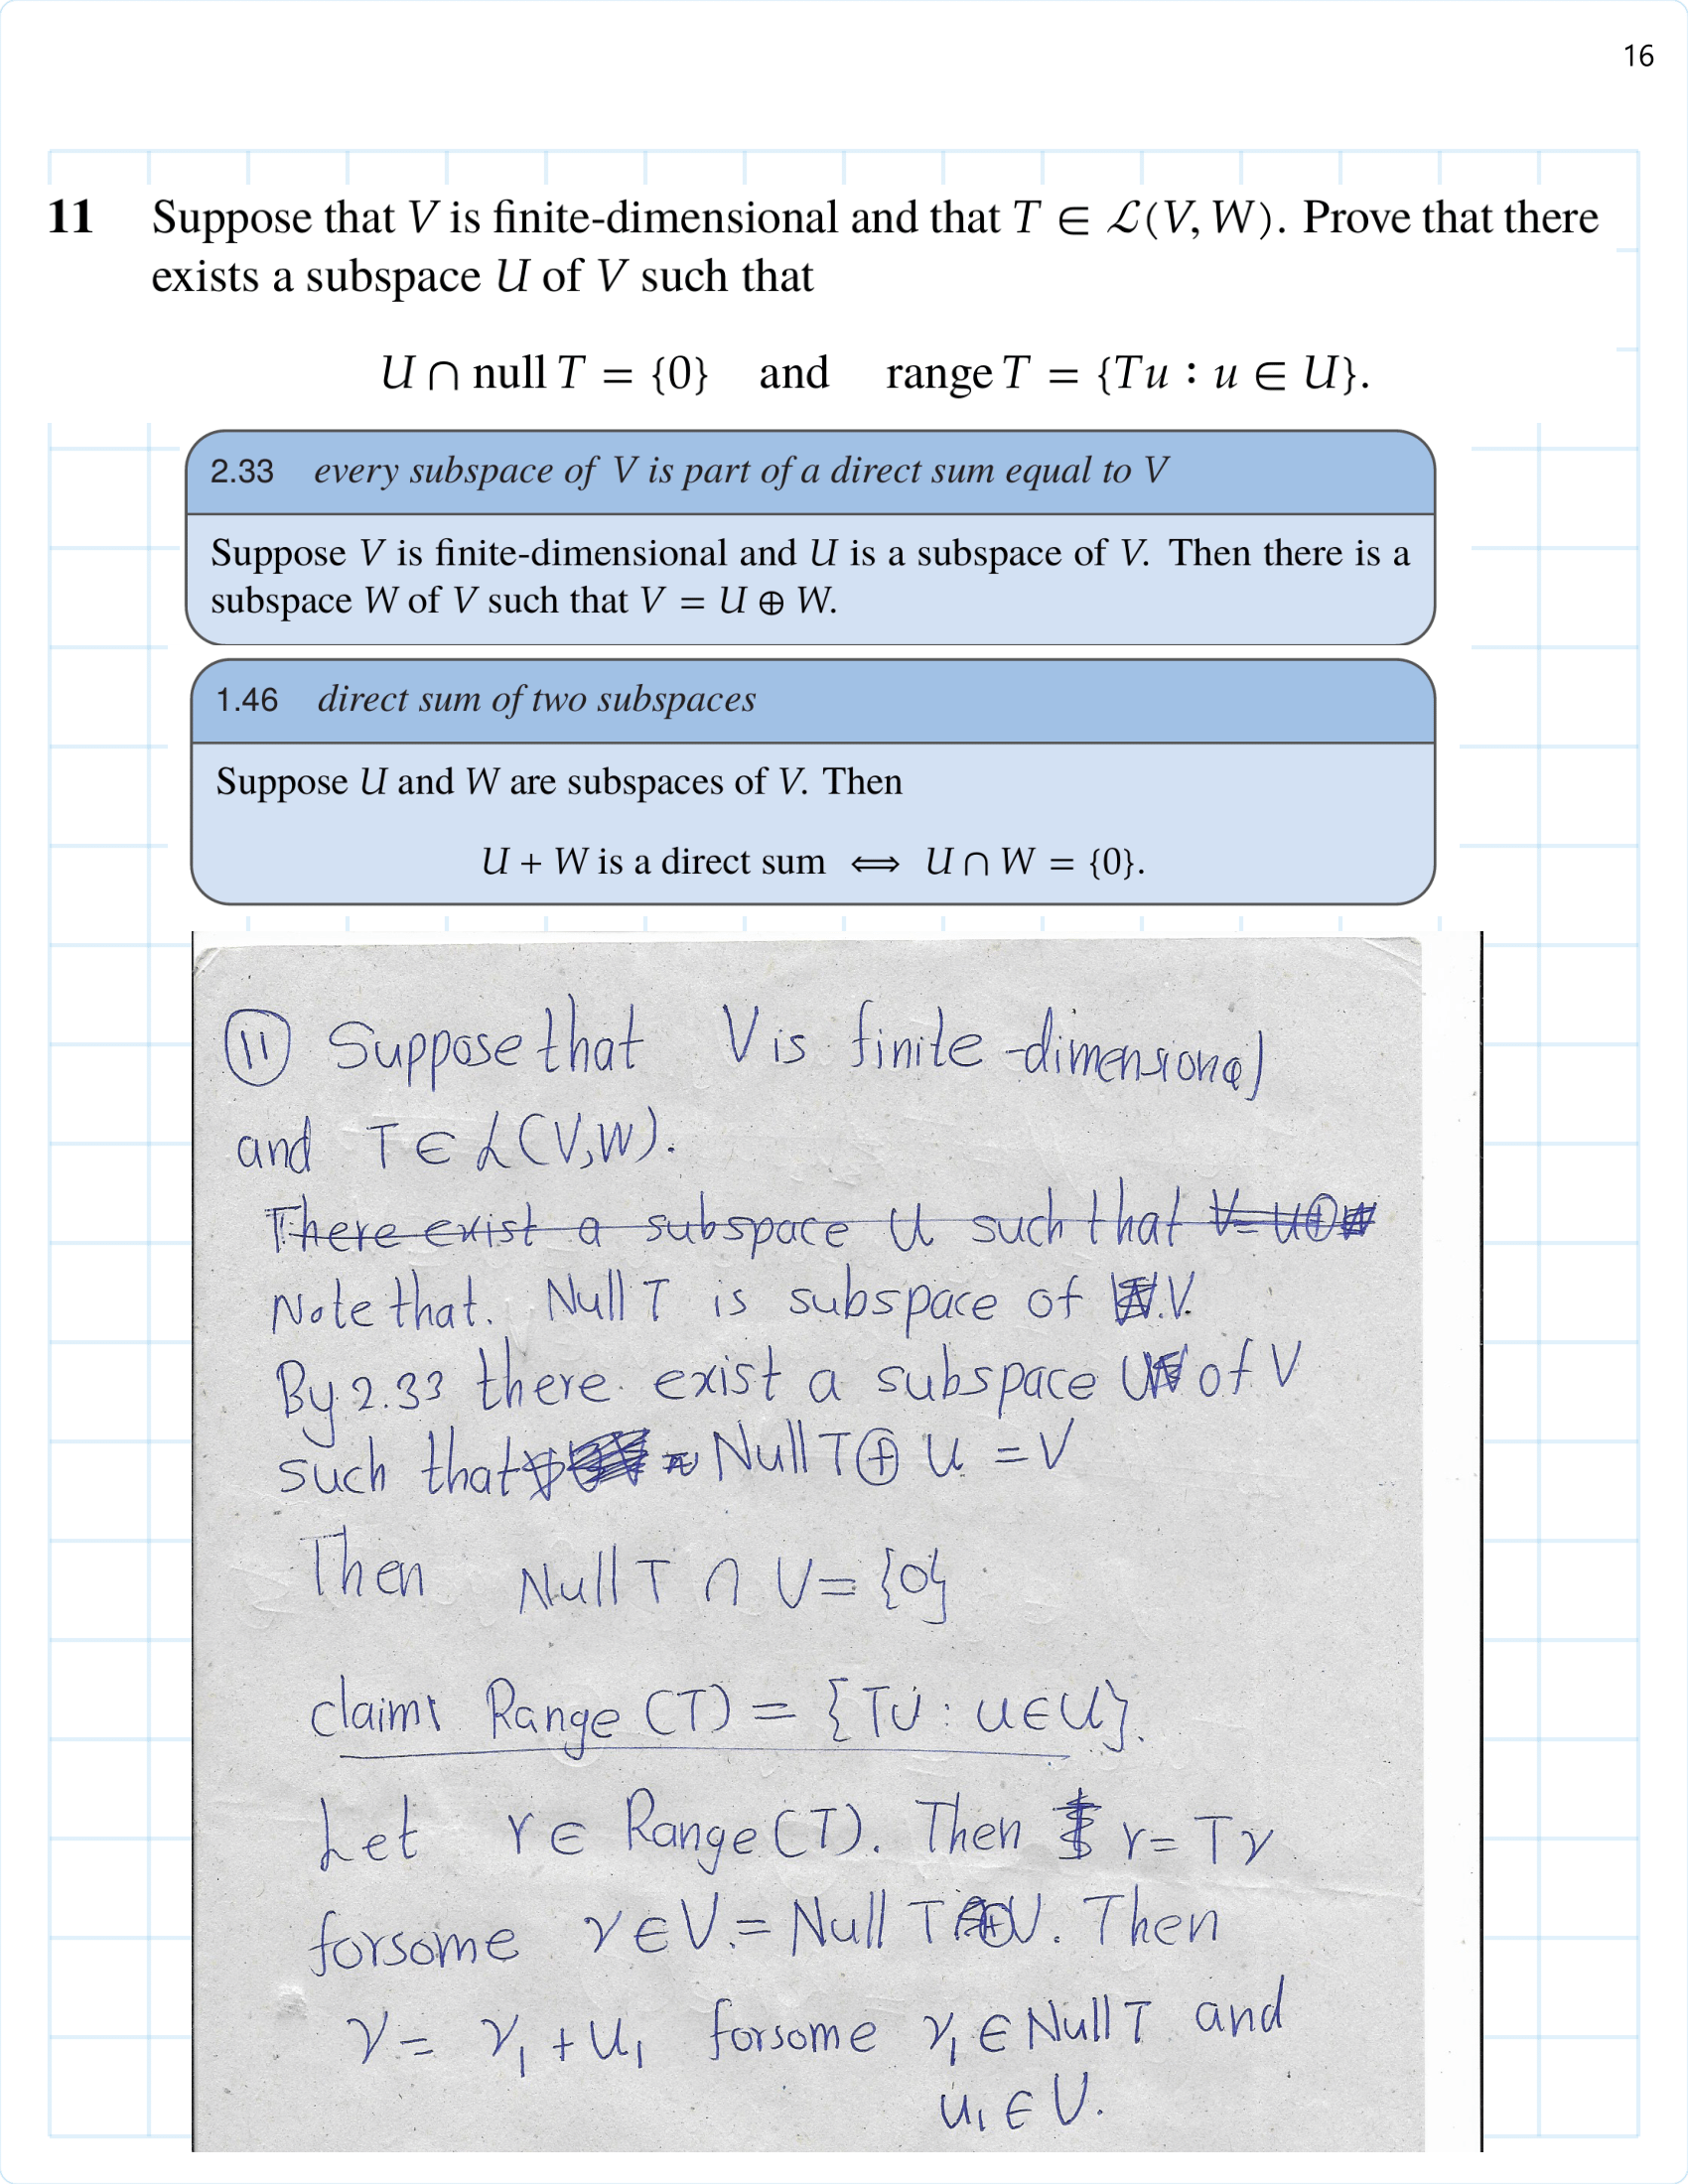 16
11 Suppose that V is finite-dimensional and that T ∈ ℒ(V, W). Prove that there
exists a subspace U of V such that
U ∩ null T = {0} and range T = {Tu : u ∈ U}.
2.33 every subspace of V is part of a direct sum equal to V
Suppose V is finite-dimensional and U is a subspace of V. Then there is a
subspace W of V such that V = U ⊕ W.
1.46 direct sum of two subspaces
Suppose U and W are subspaces of V. Then
U + W is a direct sum ⟺ U ∩ W = {0}.
11 Suppose that V is finite-dimensional
and T ∈ ℒ(V,W).
There exist a subspace U such that V = U⊕W
Note that. Null T is subspace of V.
By 2.33 there exist a subspace U of V
such that Null T ⊕ U = V
Then Null T ∩ U = {0}
claim: Range (T) = {Tu : u∈U}.
Let r ∈ Range (T). Then r = Tv
forsome v ∈ V = Null T ⊕ U. Then
v = v₁ + u₁ forsome v₁ ∈ Null T and
u₁ ∈ U.